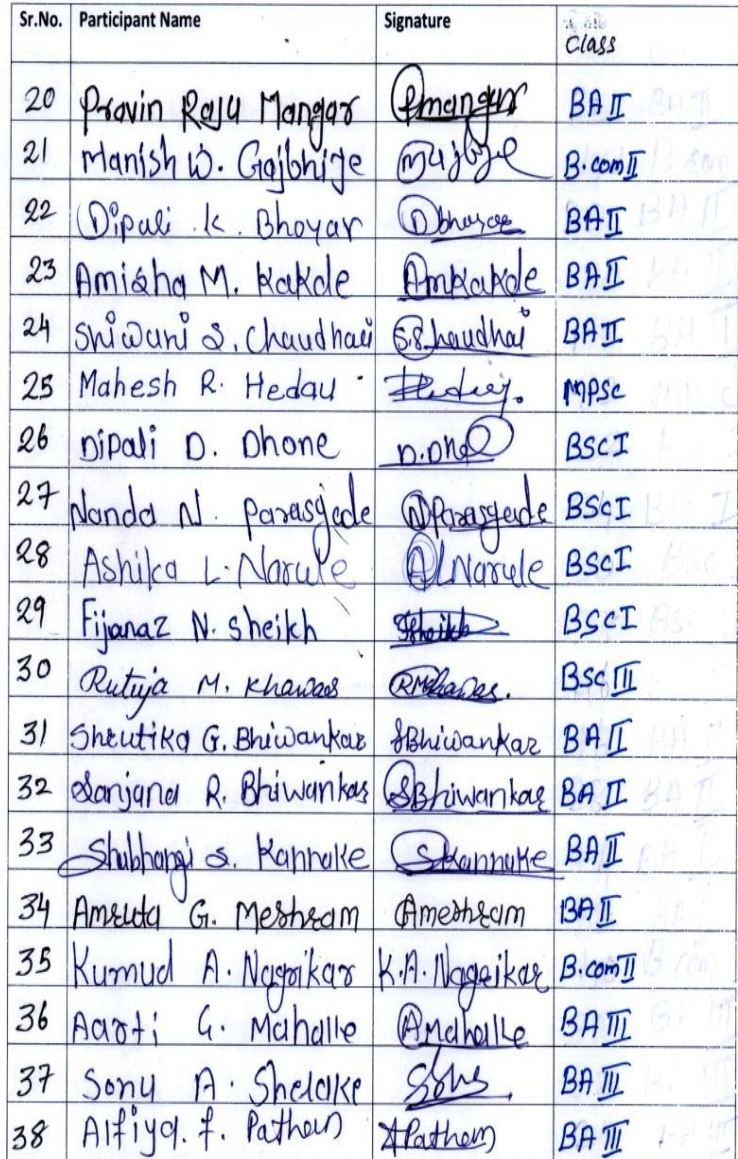 Sr.No. Participant Name Signature Class
20 Pravin Raju Mangar Pmangar BA II
21 Manish W. Gajbhiye BA II B.com II
22 Dipali K. Bhoyar Dbhoyar BA II
23 Amisha M. Kakde AmKakde BA II
24 Shiwani S. Chaudhari S.S.Chaudhai BA II
25 Mahesh R. Hedau MPSC
26 Dipali D. Dhone D.Dh BSC I
27 Nanda N. Parasgede NParasgede BSC I
28 Ashika L. Narule ALNarule BSC I
29 Fijanaz N. Sheikh Sheikh BSC I
30 Rutuja M. Khawas RMKhawas. BSC III
31 Shrutika G. Bhiwankar SBhiwankar BA II
32 Sanjana R. Bhiwankar SBhiwankar BA II
33 Shubhangi S. Kannake SKannake BA II
34 Amruta G. Meshram Ameshram BA II
35 Kumud A. Nagrikar K.A. Nagrikar B.com II
36 Aarti G. Mahalle AMahalle BA III
37 Sonu A. Shelake BA III
38 Alfiya. f. Pathan APathan BA III